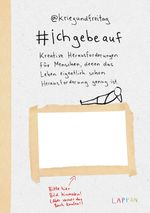 @kriegundfreitag
#ichgebeauf
Kreative Herausforderungen
für Menschen, denen das
Leben eigentlich schon
Herausforderung genug ist
Bitte hier
Bild hineinmalen!
LAPPAN